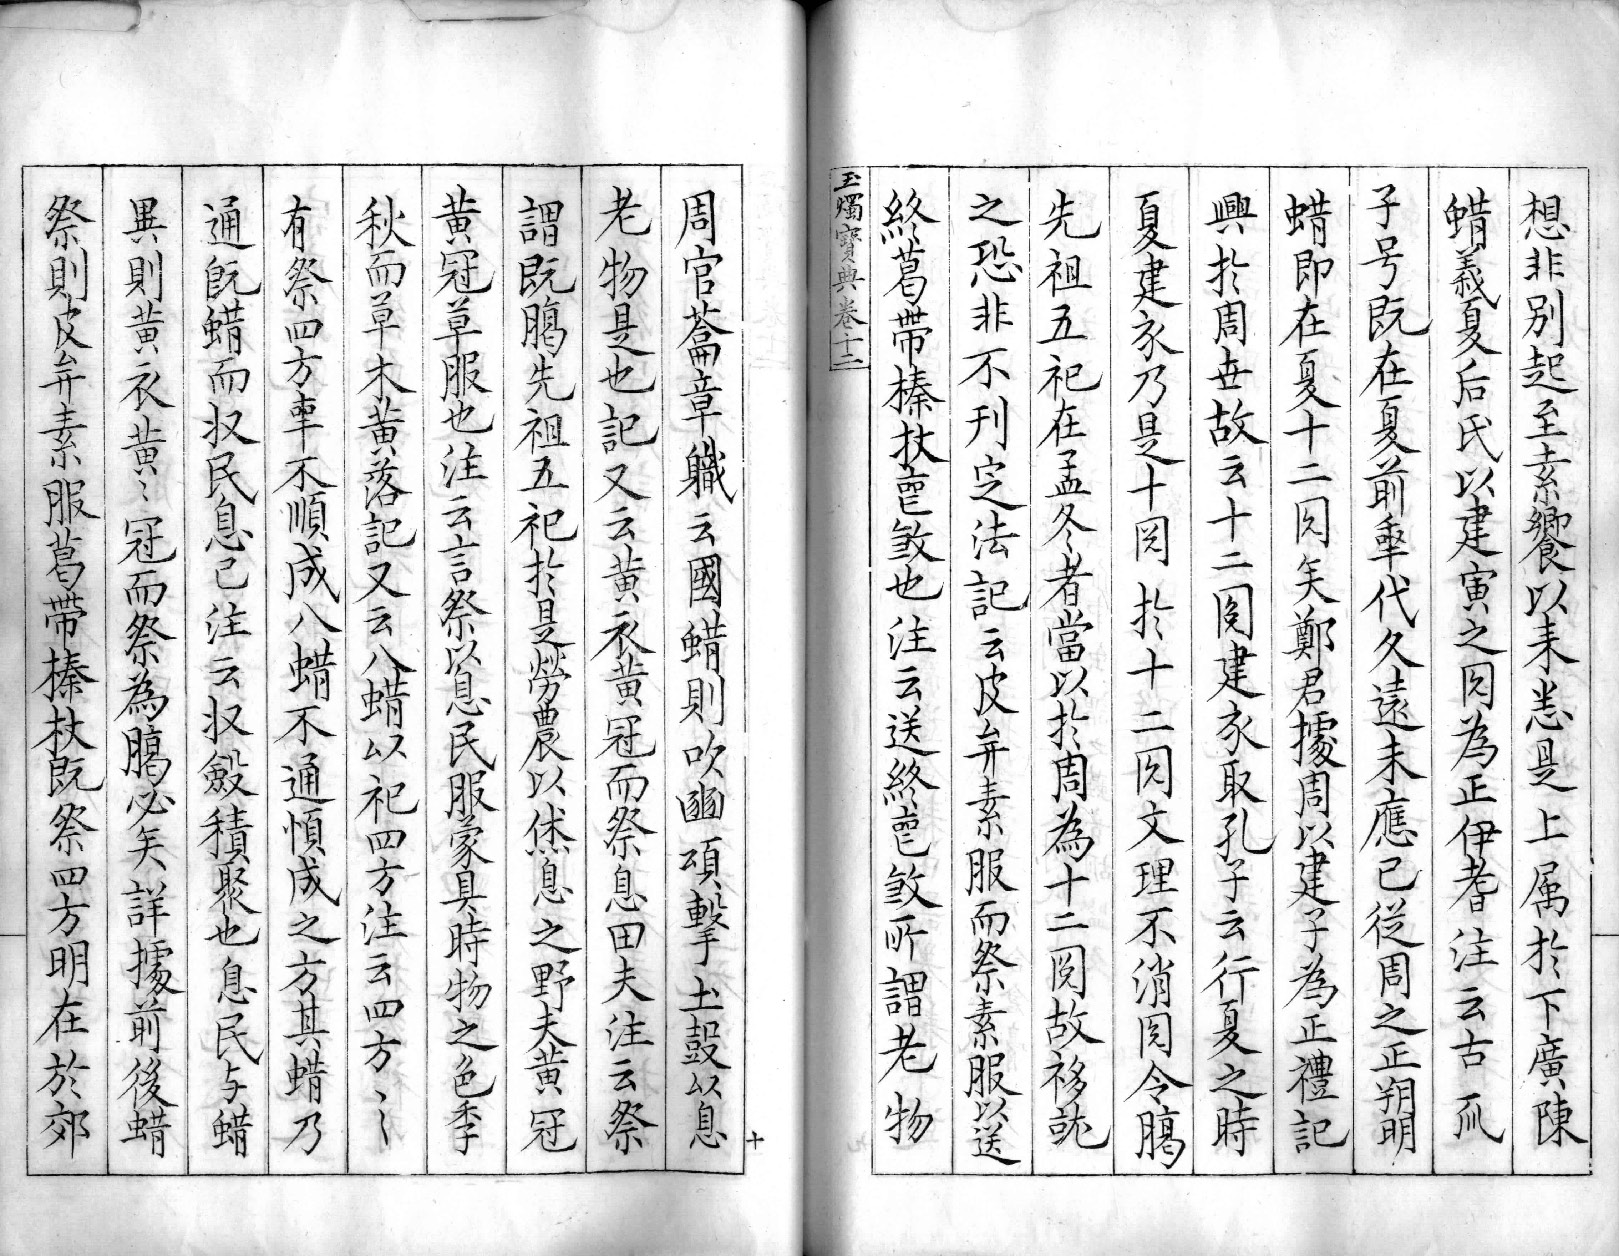 想非别起至素饗以来恙是上属扵下廣陳
蜡義夏后氏以建寅之囝為正伊耆注云古
子号既在夏前乗代久遠未應已従周之正朔明
蜡即在夏十二囝矣鄭君據周以建子為正禮記
興扵周丗故云十二囝建亥取孔子云行夏之時
夏建亥乃是十囝扵十二囝文理不消囝令臈
先祖五祀在孟冬者當以扵周為十二囝故移就
之恐非不刋㝎法記云皮弁素服而祭素服以送
終葛帶榛杖䘮煞也注云送終䘮煞所謂老物
玉燭寶典卷十二
周官籥章職云國蜡則吹豳頌擊土鼓以息
老物是也記又云黄衣黄冠而祭息田夫注云祭
謂既臈先祖五祀扵是勞農以休息之野夫黄冠
黄冠草服也注云言祭以息民服蒙具時物之色季
秋而草木黄落記又云八蜡以祀四方注云四方〻
有祭四方年不順成八蜡不通慎成之方其蜡乃
通既蜡而収民息已注云収斂積聚也息民与蜡
異則黄衣黄〻冠而祭為臈必矣詳據前後蜡
祭則皮弁素服葛帶榛杖既祭四方明在於郊
十